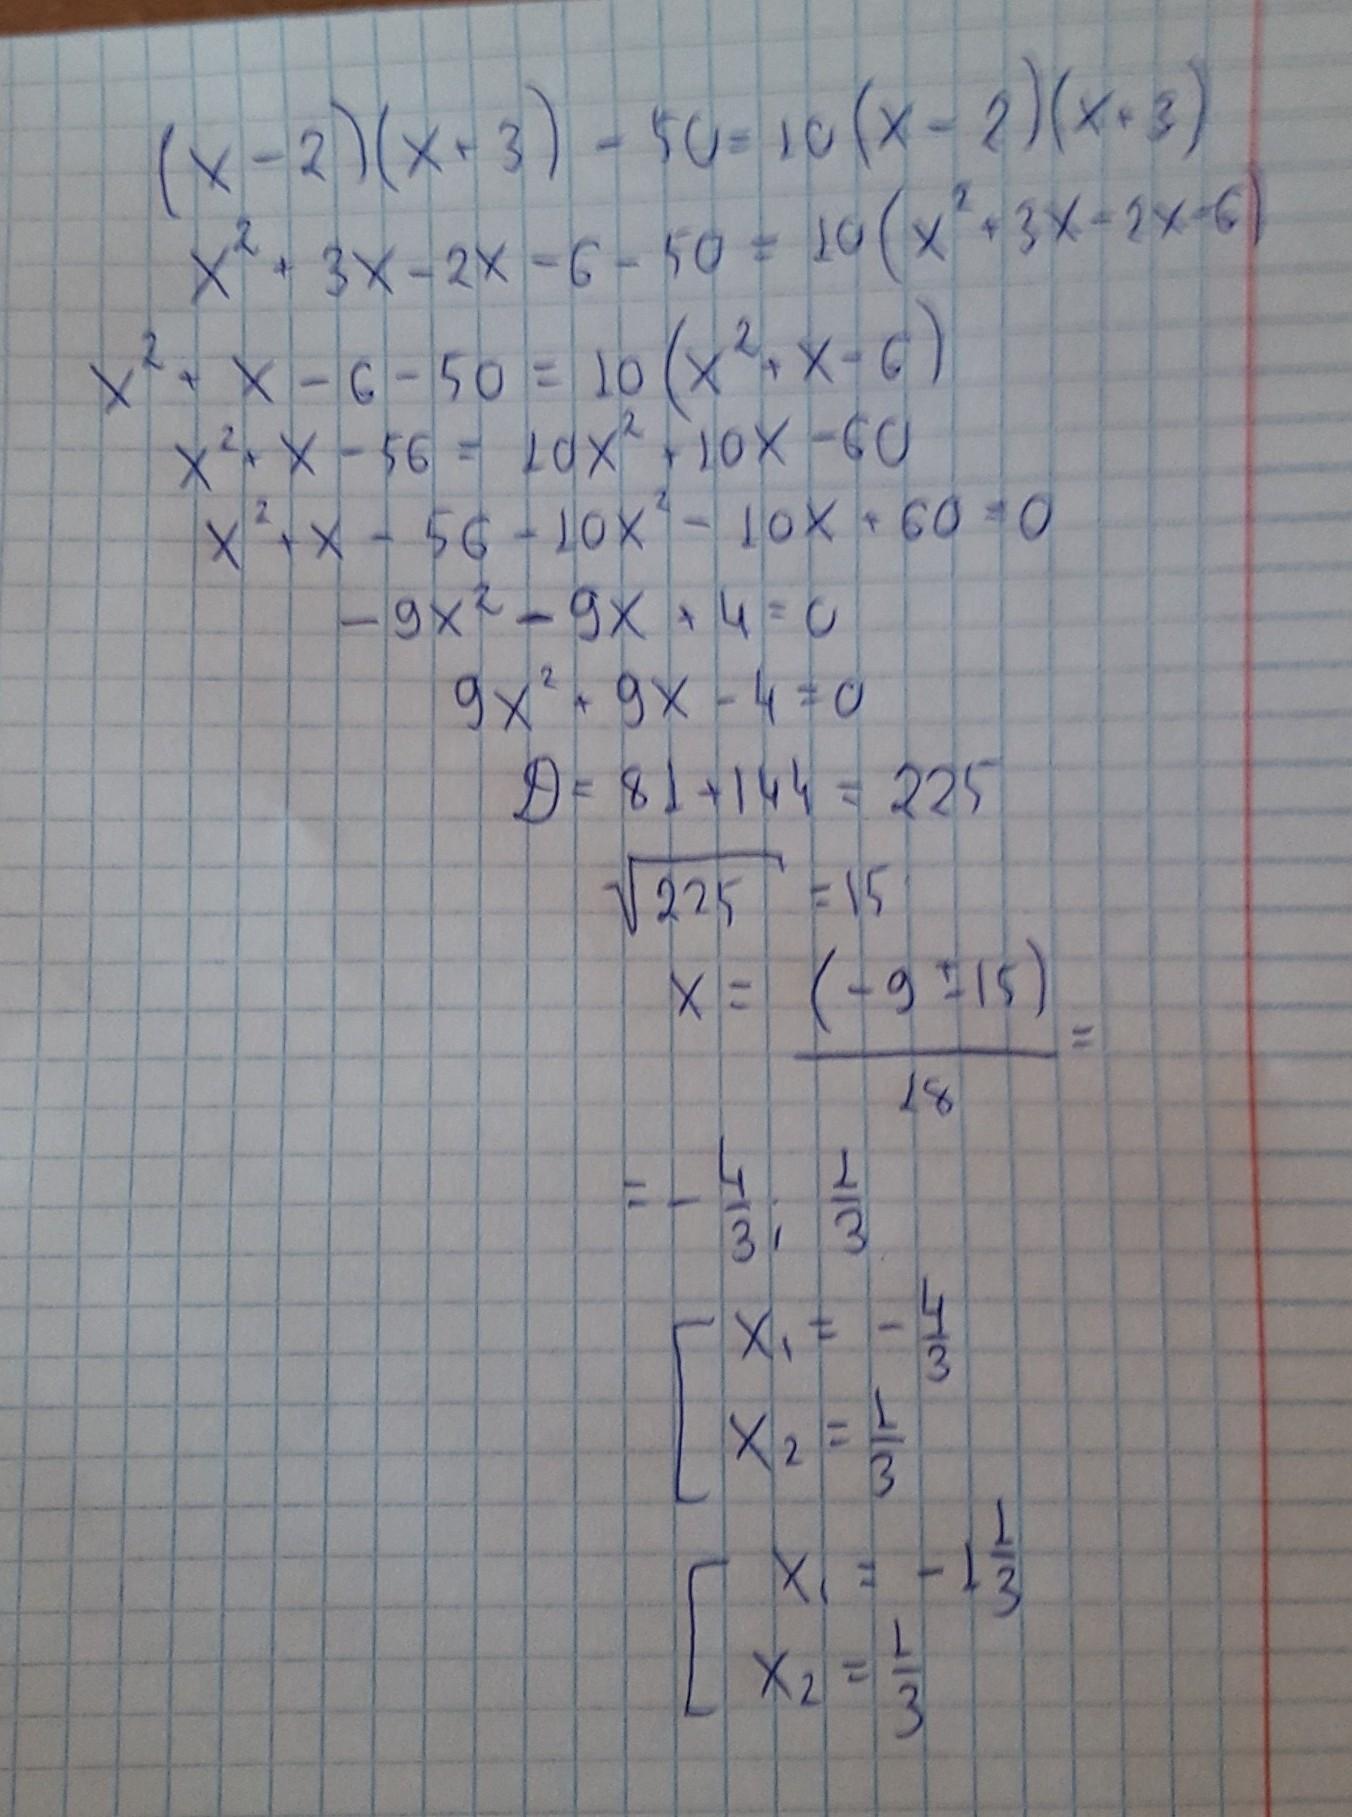 (x - 2)(x + 3) - 50 = 10(x - 2)(x + 3)
x² + 3x - 2x - 6 - 50 = 10(x² + 3x - 2x - 6)
x² + x - 6 - 50 = 10(x² + x - 6)
x² + x - 56 = 10x² + 10x - 60
x² + x - 56 - 10x² - 10x + 60 = 0
-9x² - 9x + 4 = 0
9x² + 9x - 4 = 0
D = 81 + 144 = 225
√225 = 15
x = (-9 ± 15)/18 =
= -4/3; 1/3
[ x₁ = -4/3
x₂ = 1/3
[ x₁ = -1 1/3
x₂ = 1/3